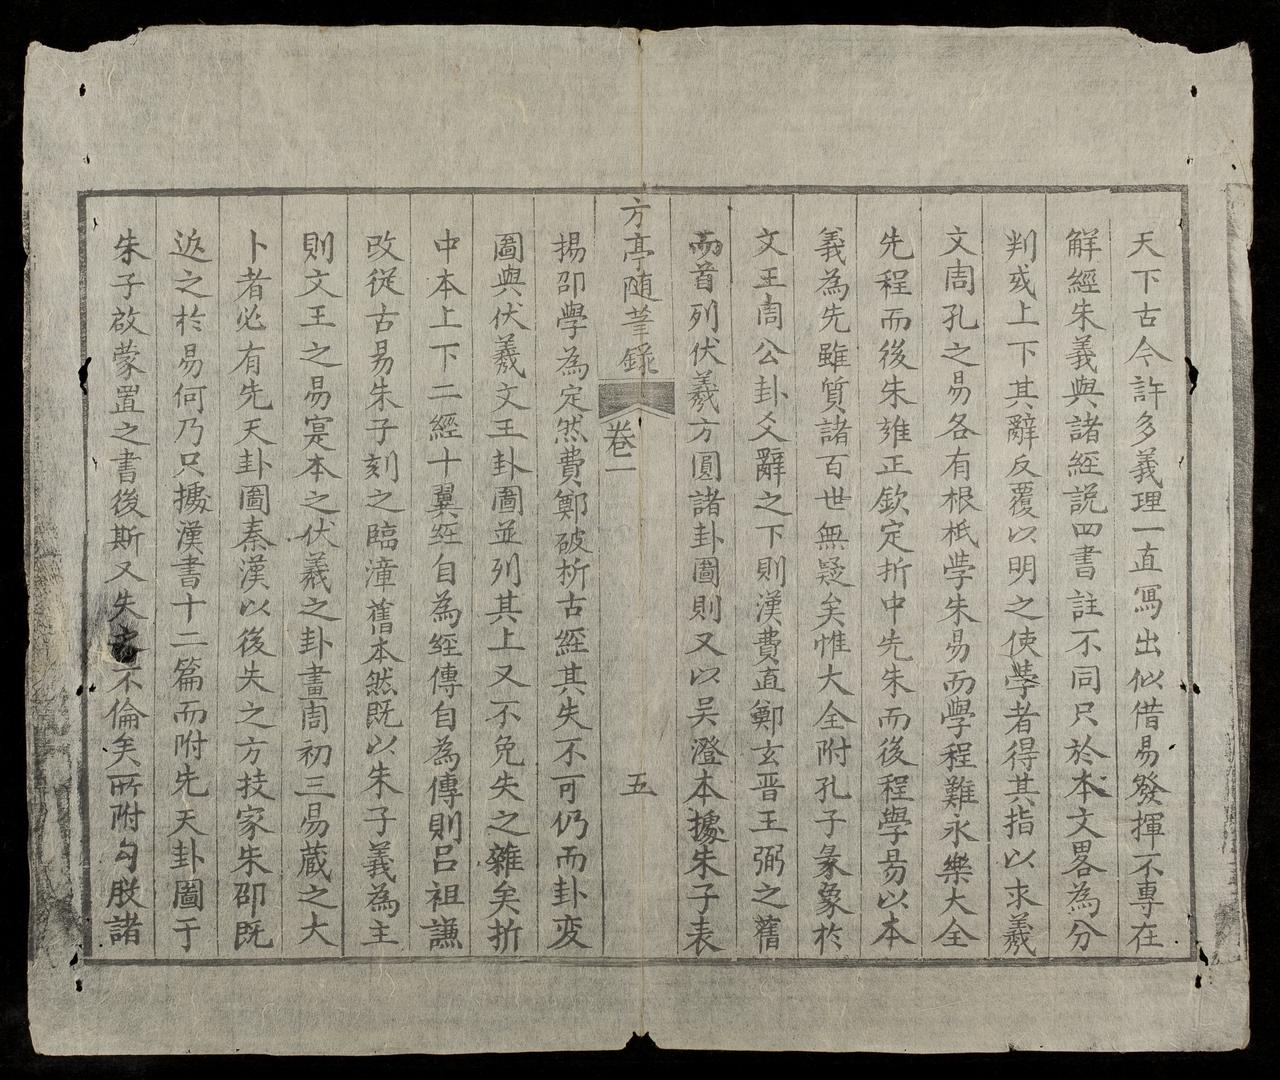 天下古今許多義理一直寫出似借易發揮不專在
解經朱義與諸經説四書註不同只於本文畧為分
判或上下其辭反覆以明之使學者得其指以求羲
文周孔之易各有根柢學朱易而學程難永樂大全
先程而後朱雍正欽定折中先朱而後程學易以本
義為先雖質諸百世無疑矣惟大全附孔子彖象於
文王周公卦爻辭之下則漢費直鄭玄晋王弼之舊
而首列伏羲方圓諸卦圖則又以吳澄本據朱子表
方亭随筆錄 卷一 五
揚邵學為定然費鄭破析古經其失不可仍而卦変
圖與伏羲文王卦圖並列其上又不免失之雜矣折
中本上下二經十翼經自為經傳自為傳則呂祖謙
改從古易朱子刻之臨漳舊本然既以朱子義為主
則文王之易寔本之伏羲之卦畫周初三易蔵之大
卜者必有先天卦圖秦漢以後失之方技家朱邵既
返之於易何乃只據漢書十二篇而附先天卦圖于
朱子啟蒙置之書後斯又失不倫矣所附勾股諸